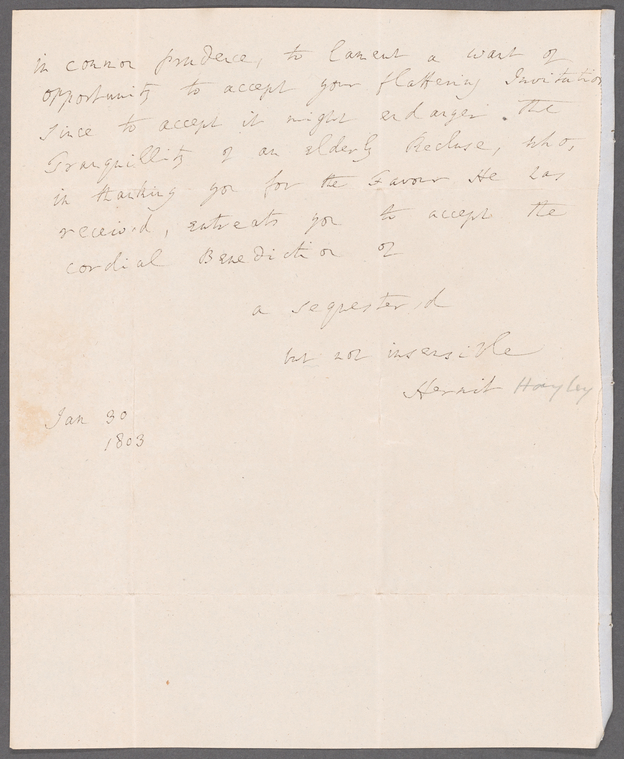 in common prudence, to lament a want of
opportunity to accept your flattering Invitation
since to accept it might endanger the
Tranquillity of an elderly Recluse, who,
in thanking you for the Favour He has
received, entreats you to accept the
cordial Benediction of
a sequestered
but not insensible
Hermit Hayley
Jan 30
1803